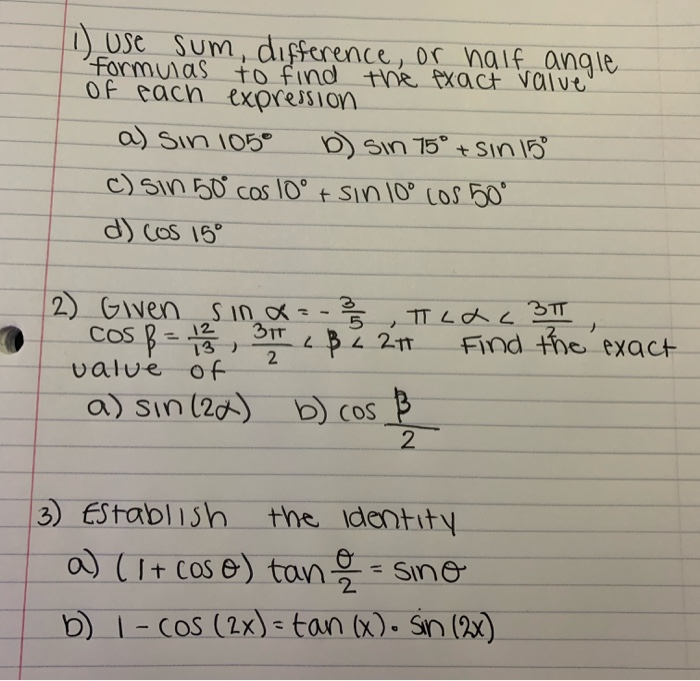 1) Use sum, difference, or half angle
formulas to find the exact value
of each expression
a) sin 105° b) sin 75° + sin 15°
c) sin 50° cos 10° + sin 10° cos 50°
d) cos 15°
2) Given sin α = - 3/5 , π < α < 3π/2 ,
cos β = 12/13 , 3π/2 < β < 2π Find the exact
value of
a) sin (2α) b) cos β/2
3) Establish the identity
a) (1 + cos θ) tan θ/2 = sin θ
b) 1 - cos (2x) = tan (x) • sin (2x)